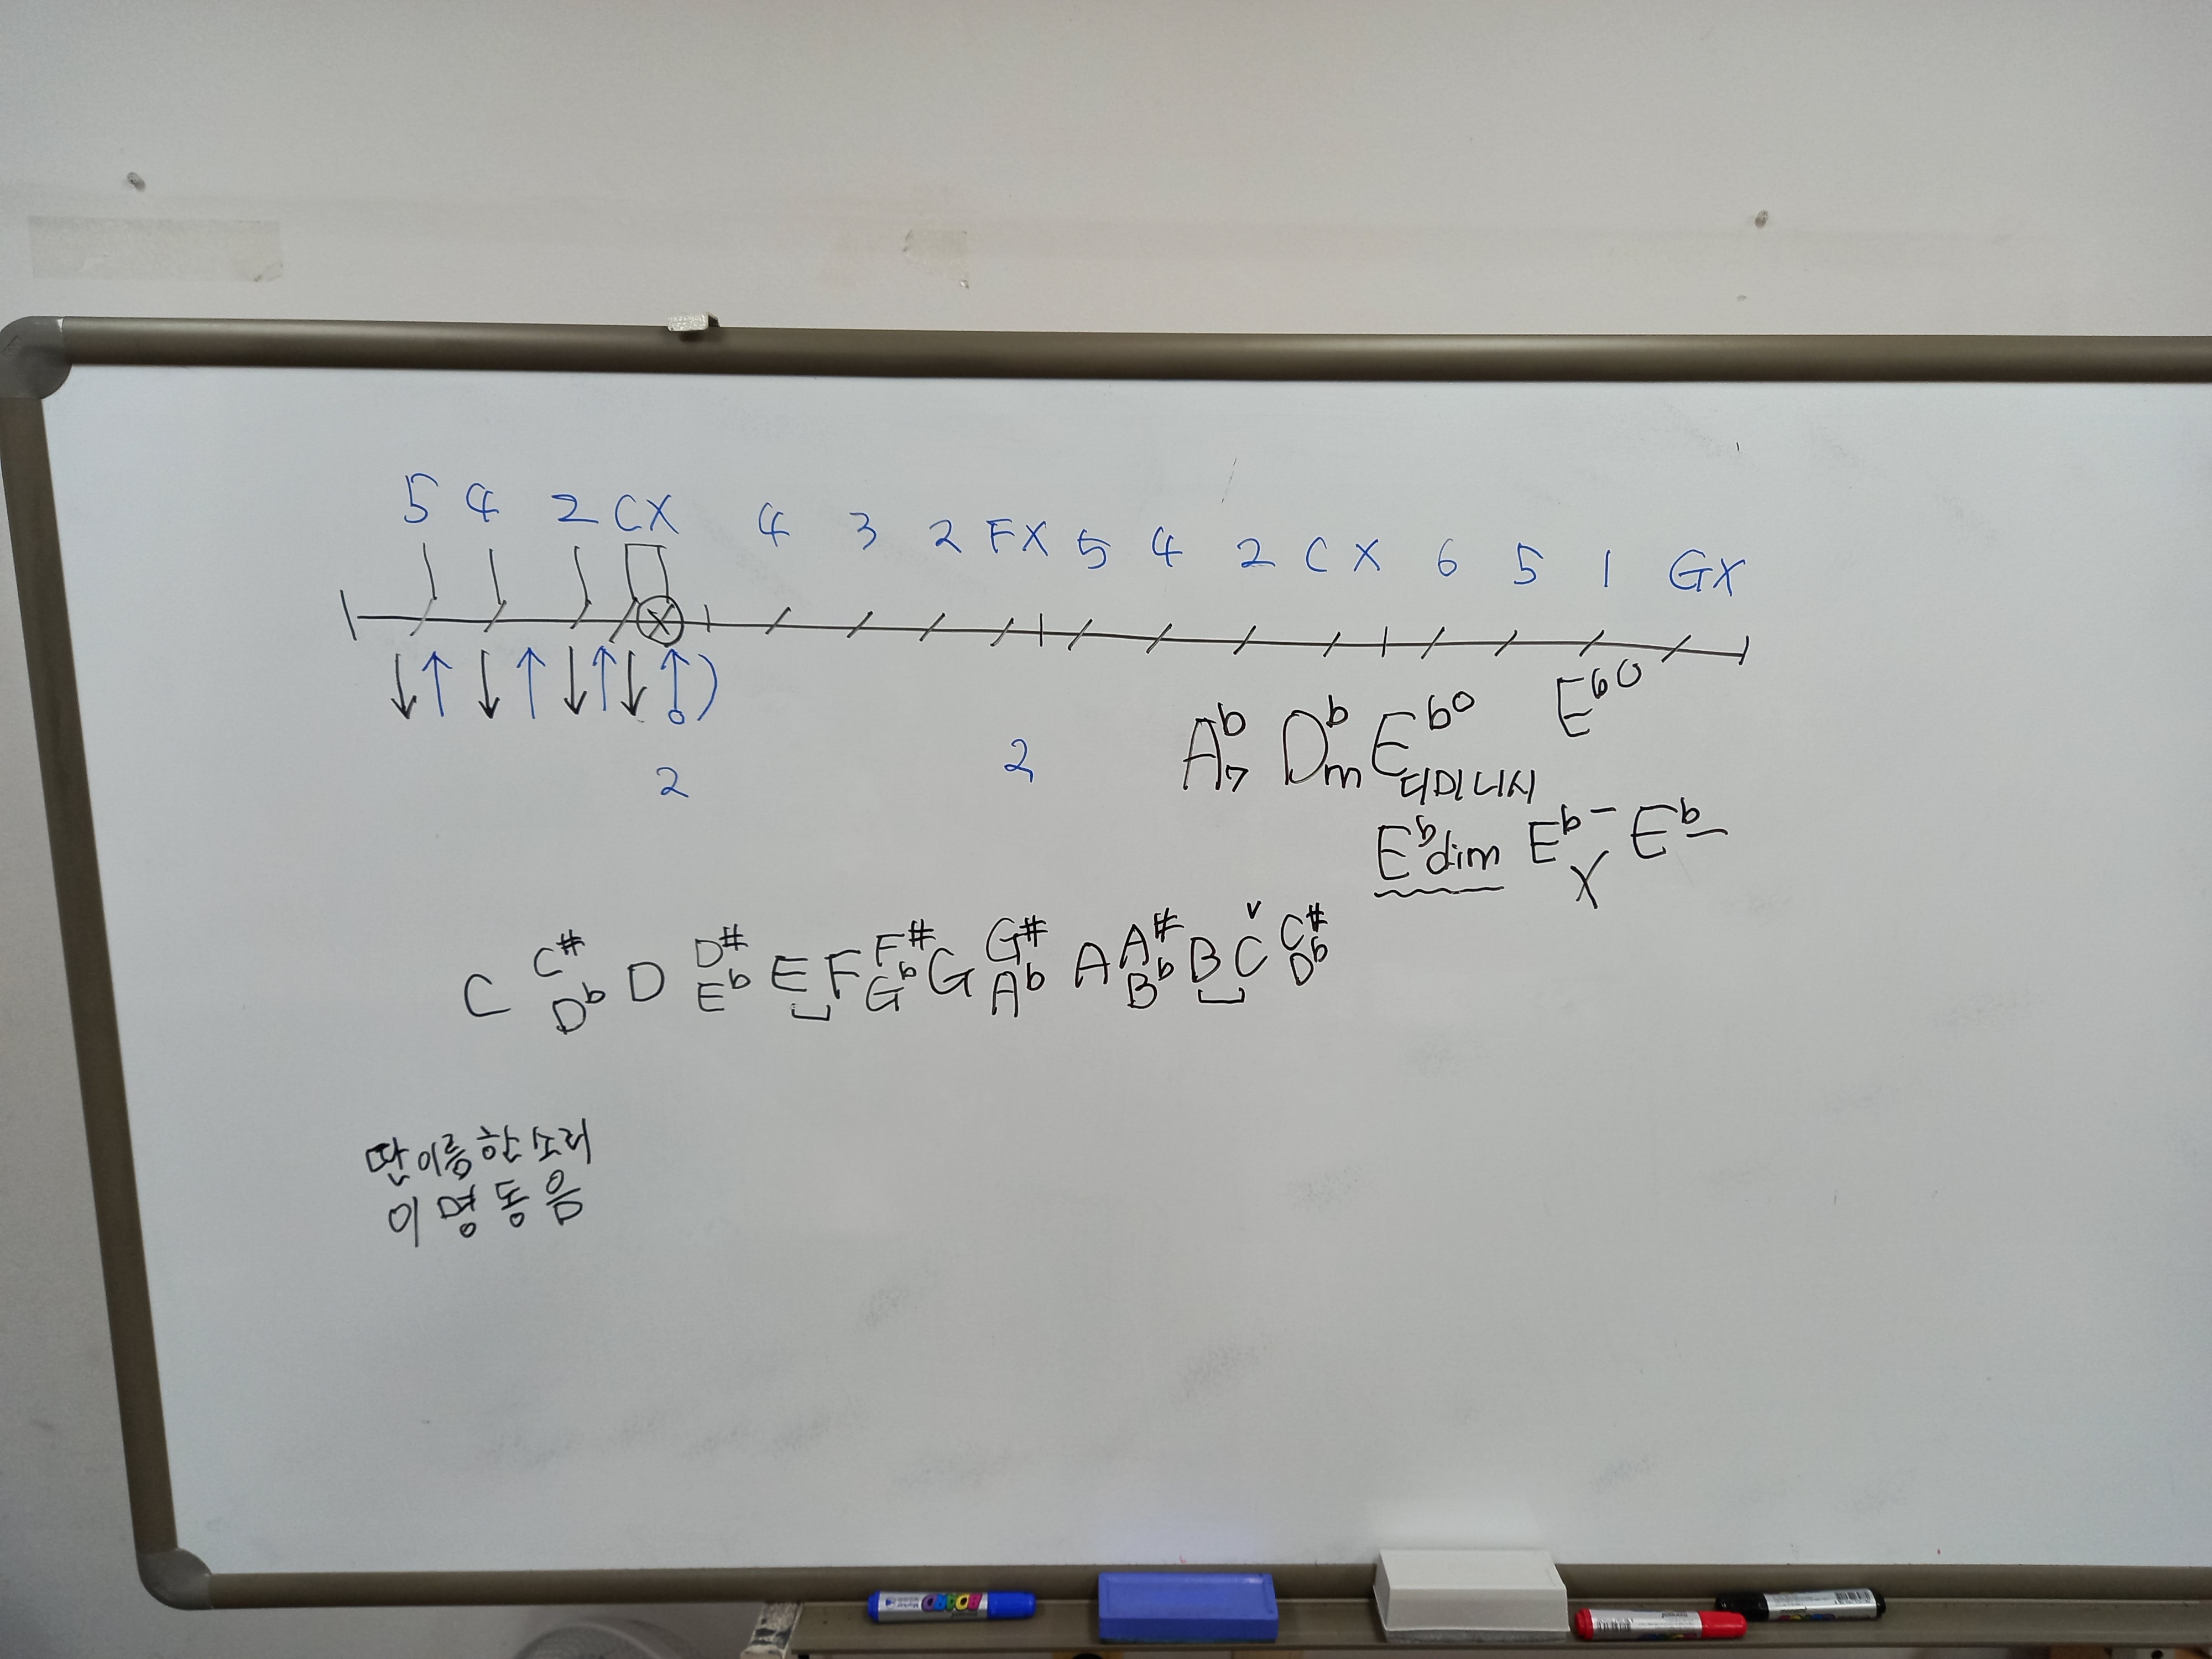 5 4 2 C X 4 3 2 F X 5 4 2 C X 6 5 1 G X
↓ ↑ ↓ ↑ ↓ ↑ ↓ ↑ )
2 2
A♭7 D♭m E♭o E♭o
디미니시
E♭dim E♭- E♭-
X
C C# D D# E F F# G G# A A# B C C#
D♭ E♭ G♭ A♭ B♭ D♭
딴이름한소리
이명동음
BOARD